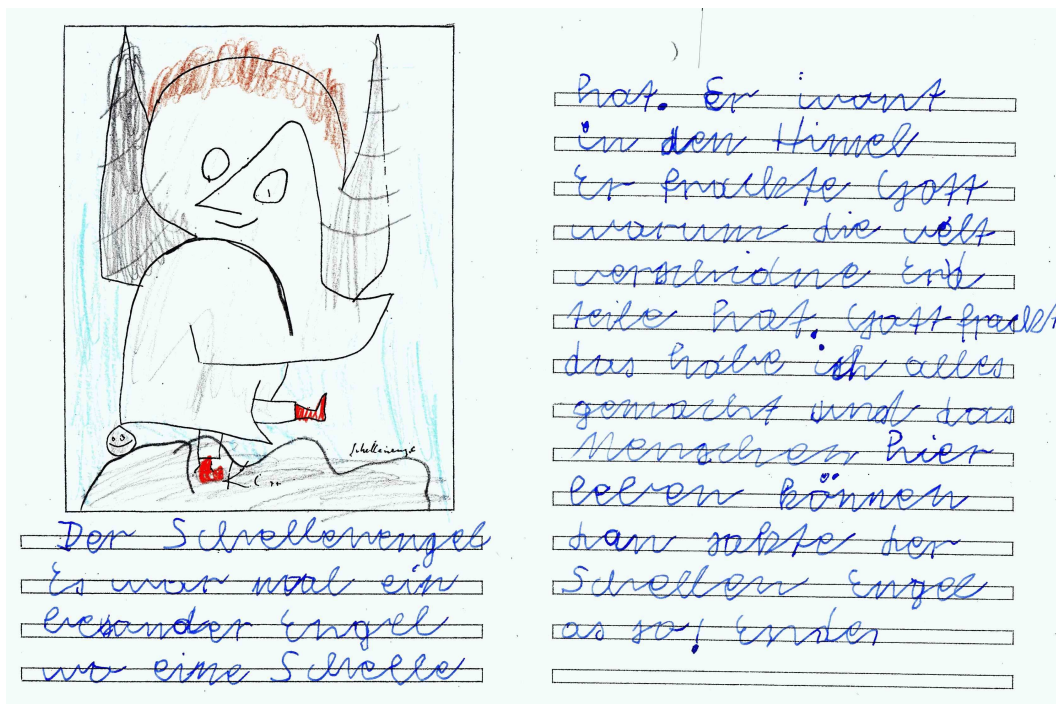 Schellenengel
Der Schellenengel
Es war mal ein
besonder Engel
wo eine Schelle
hat. Er wont
in den Himel
Er frackte Gott
warum die welt
verschidne Erd
teile hat. Gott frackt
das habe ich alles
gemacht und das
Menschen hier
leben können
dan sakte der
Schellen Engel
as so! Ende